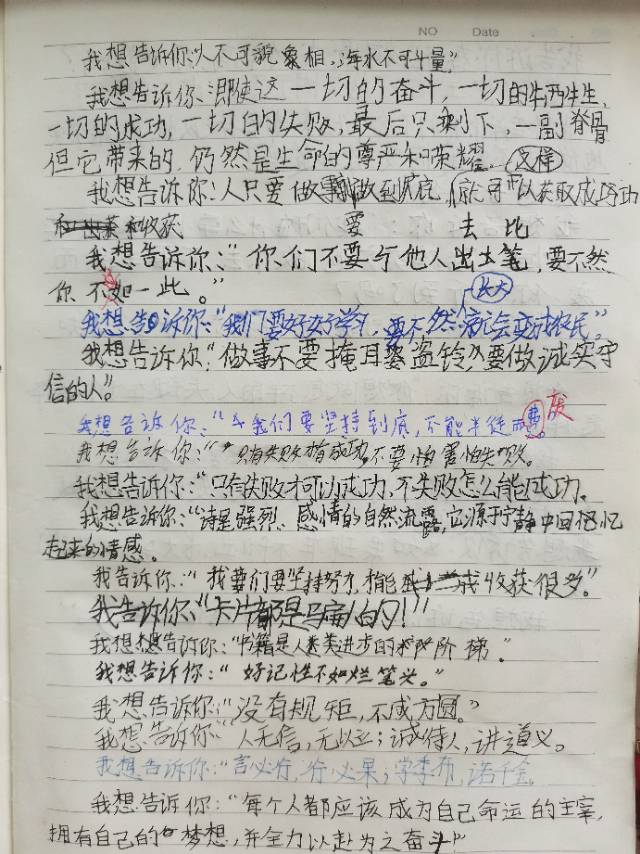 NO  Date
我想告诉你:"人不可貌象相,海水不可斗量"
我想告诉你:即使这一切的奋斗,一切的牺牲,
一切的成功,一切的失败,最后只剩下,一副脊骨
但它带来的,仍然是生命的尊严和荣耀。这样
我想告诉你:人只要做事做到底,就可以获取成功
和收获 要 去比
我想告诉你:"你们不要与他人出土笔,要不然
你不如一此。"
长大
我想告诉你:"我们要好好学习,要不然就会变成农民"
我想告诉你"做事不要掩耳盗铃,要做诚实守
信的人"。
我想告诉你:"我们要坚持到底,不能半徒而费。废
我想告诉你:"只有失败才有成功,不要怕害怕失败。
我想告诉你:"只有失败才可以成功,不失败怎么能成功。
我想告诉你:"诗是强烈感情的自然流露,它源于宁静中回忆
起来的情感。
我告诉你:"我们要坚持努力,才能成收获很多"
我告诉你:"卡片都是骗人的!"
我想想告诉你:"书籍是人类进步的阶梯"
我想告诉你:"好记性不如烂笔头。"
我想告诉你:"没有规矩,不成方圆。"
我想告诉你"人无信,无以立;诚待人,讲道义。
我想告诉你:"言必行,行必果;学季布,诺千金
我想告诉你:"每个人都应该成为自己命运的主宰,
拥有自己的梦想,并全力以赴为之奋斗"